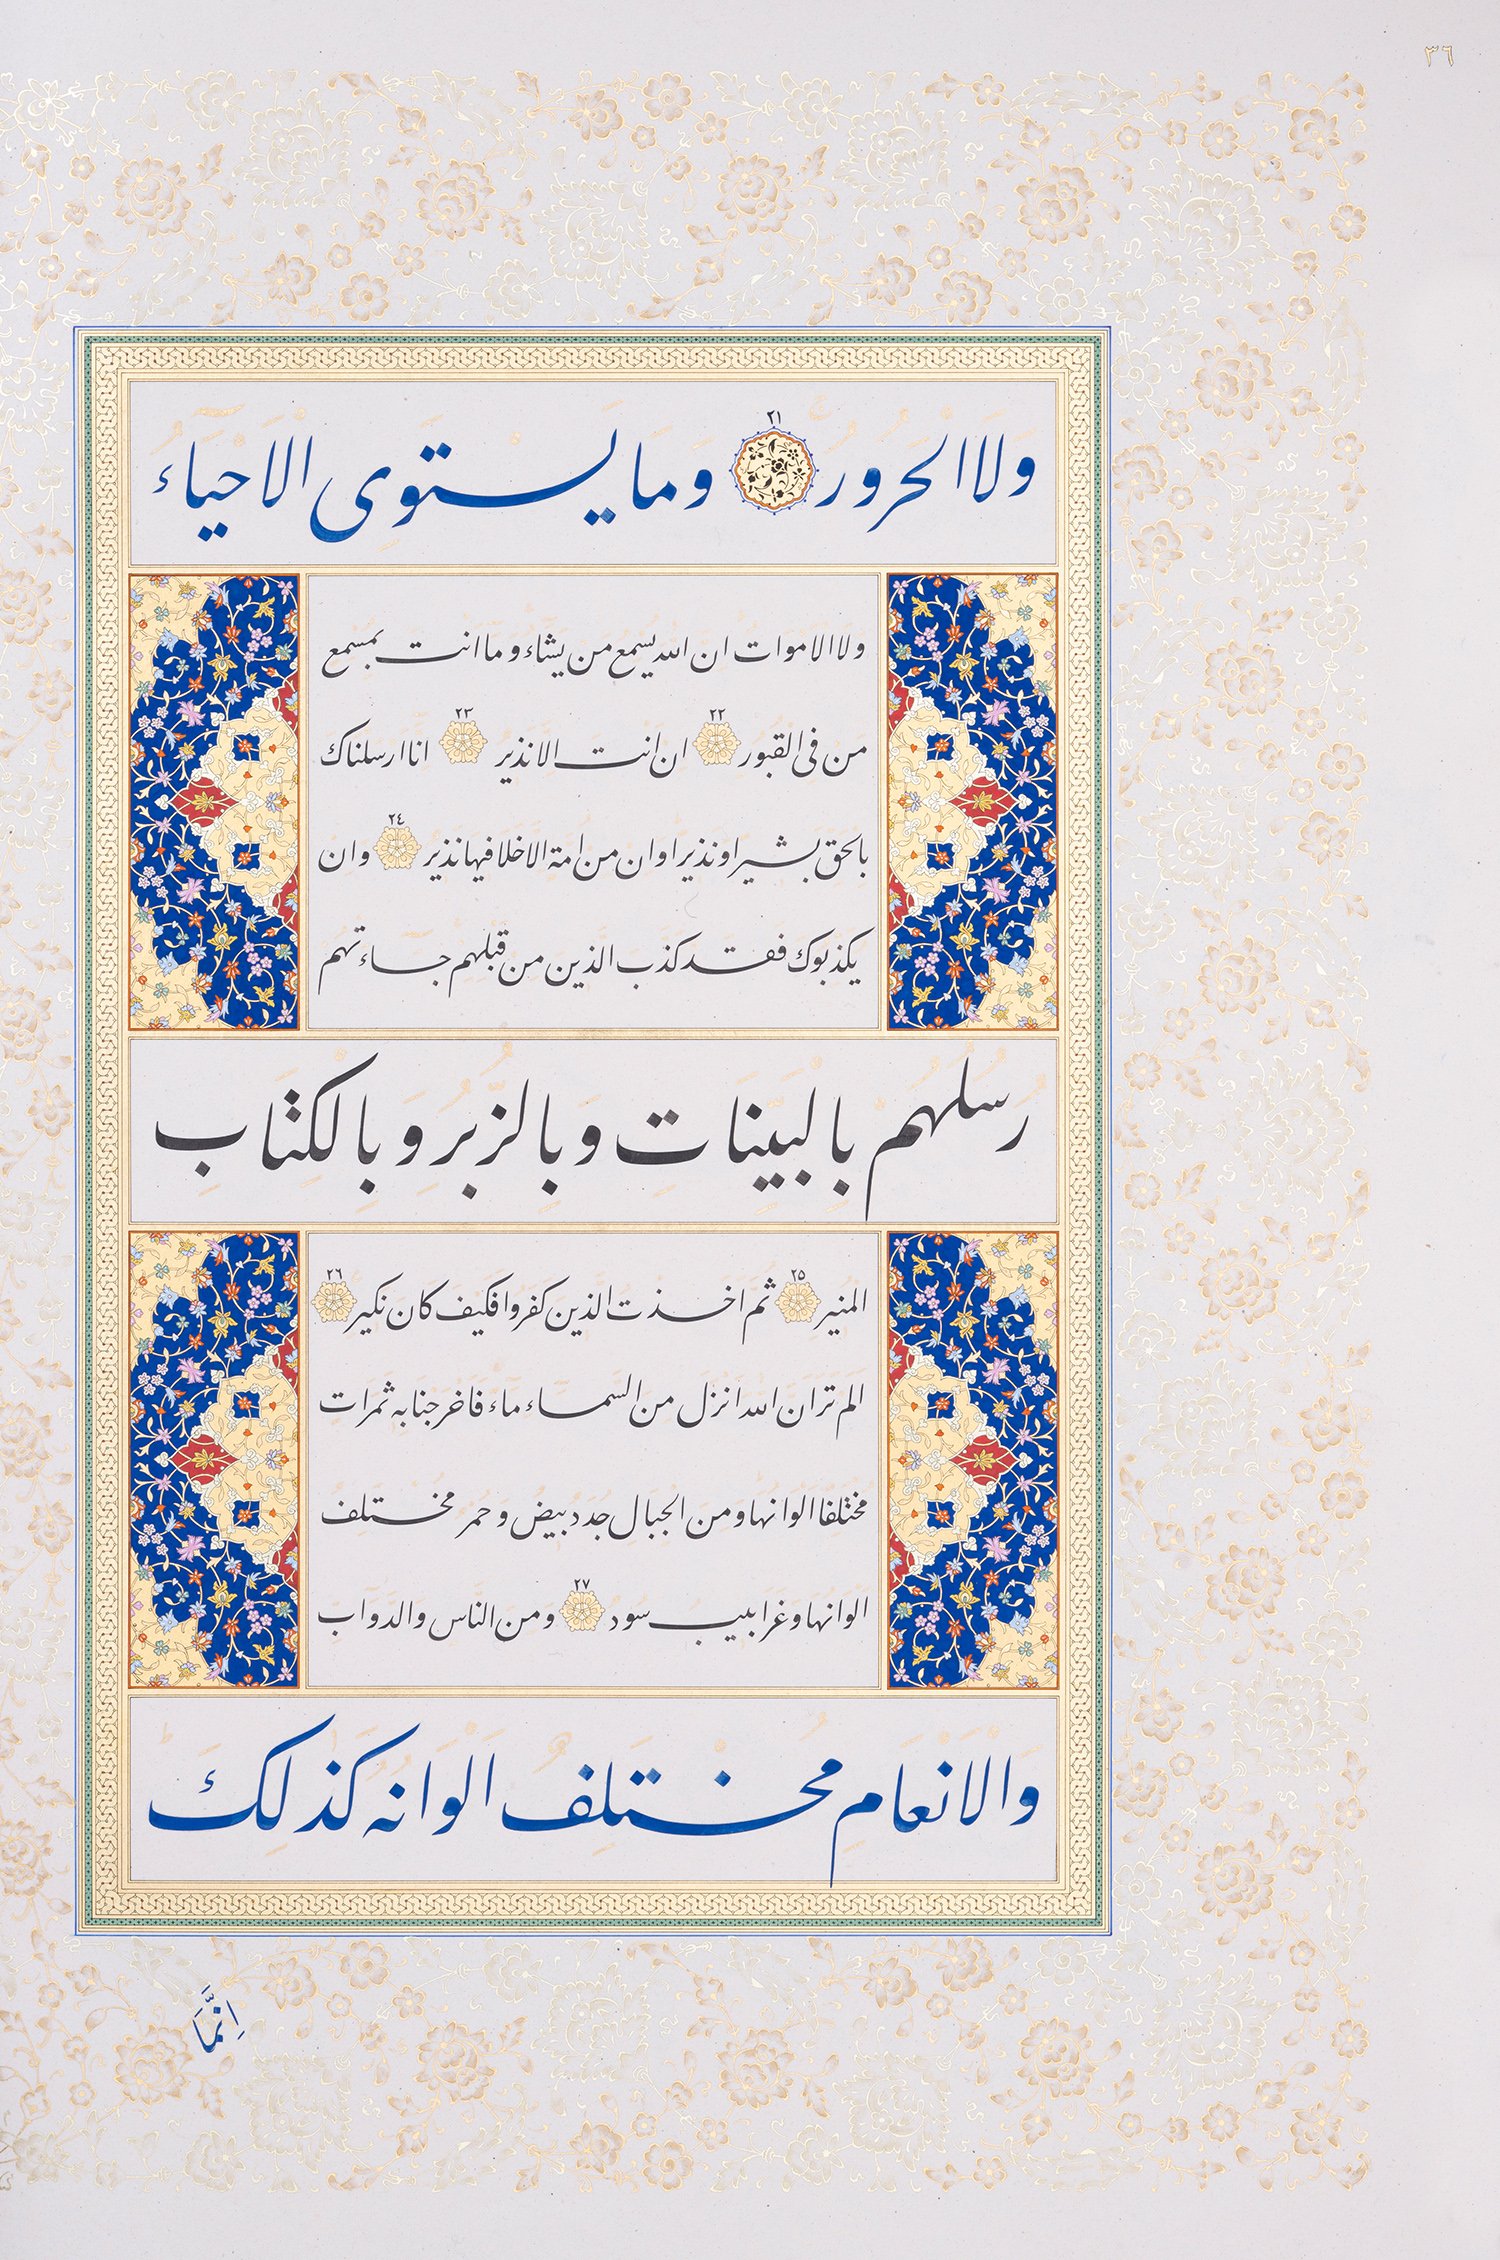 ٣٦
وَلَا الْحَرُورُ ٢١ وَمَا يَسْتَوِى الْاَحْيَآءُ
ولا الاموات ان الله يسمع من يشاء وما انت بمسمع
من فى القبور ٢٢ ان انت الا نذير ٢٣ انا ارسلناك
بالحق بشيرا ونذيرا وان من امة الا خلا فيها نذير ٢٤ وان
يكذبوك فقد كذب الذين من قبلهم جاءتهم
رُسُلُهُمْ بِالْبَيِّنَاتِ وَبِالزُّبُرِ وَبِالْكِتَابِ
المنير ٢٥ ثم اخذت الذين كفروا فكيف كان نكير ٢٦
الم تر ان الله انزل من السماء ماء فاخرجنا به ثمرات
مختلفا الوانها ومن الجبال جدد بيض وحمر مختلف
الوانها وغرابيب سود ٢٧ ومن الناس والدواب
وَالْاَنْعَامِ مُخْتَلِفٌ اَلْوَانُهُ كَذٰلِكَ
اِنَّمَا